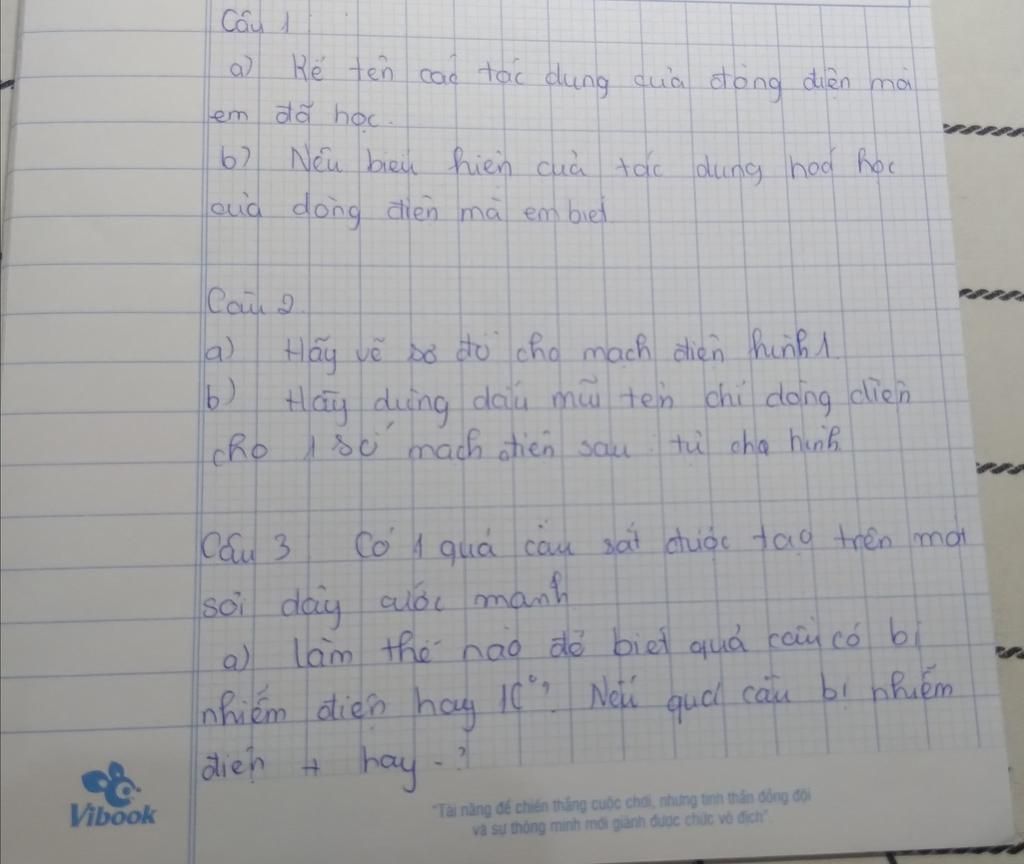 Câu 1
a) Kể tên các tác dụng của dòng điện mà
em đã học.
b) Nêu biểu hiện của tác dụng hoá học
của dòng điện mà em biết
Câu 2.
a) Hãy vẽ sơ đồ cho mạch điện hình 1.
b) Hãy dùng dấu mũi tên chỉ dòng điện
cho 1 số mạch điện sau tự cho hình.
Câu 3 Có 1 quả cầu sắt được treo trên một
sợi dây cước mảnh
a) làm thế nào để biết quả cầu có bị
nhiễm điện hay K°? Nếu quả cầu bị nhiễm
điện + hay - ?
Vibook
"Tài năng để chiến thắng cuộc chơi, nhưng tinh thần đồng đội
và sự thông minh mới giành được chức vô địch"